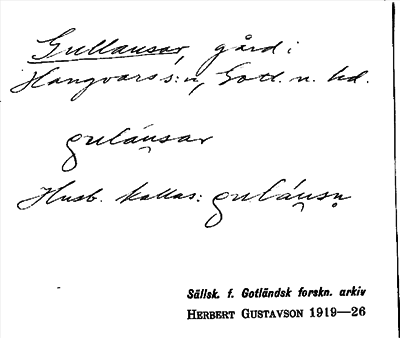 Gullausar, gård i
Hangvars s:n, Gotl. n. hd.
guláu̯sar
Husb. kallas: guláu̯sn̥
Sällsk. f. Gotländsk forskn. arkiv
HERBERT GUSTAVSON 1919—26